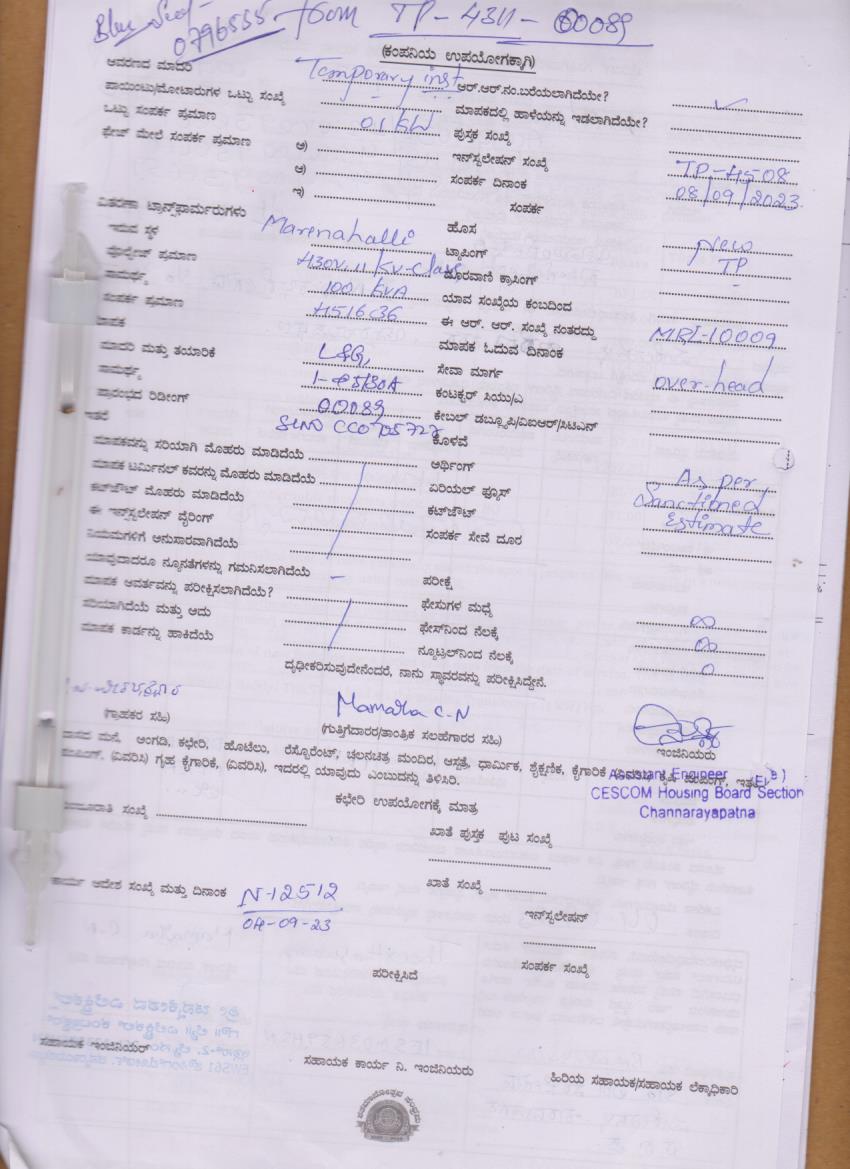 Blue Seal-
0796555 - from TP-4311-00089
(ಕಂಪನಿಯ ಉಪಯೋಗಕ್ಕಾಗಿ)
ಆವರಣದ ಮಾದರಿ Temporary inst ಆರ್.ಆರ್.ನಂ.ಬರೆಯಲಾಗಿದೆಯೇ? ✓
ಪಾಯಿಂಟು/ಮೋಟಾರುಗಳ ಒಟ್ಟು ಸಂಖ್ಯೆ - ಮಾಪಕದಲ್ಲಿ ಹಾಳೆಯನ್ನು ಇಡಲಾಗಿದೆಯೇ?
ಒಟ್ಟು ಸಂಪರ್ಕ ಪ್ರಮಾಣ 01 KW ಪುಸ್ತಕ ಸಂಖ್ಯೆ
ಫೇಜ್ ಮೇಲೆ ಸಂಪರ್ಕ ಪ್ರಮಾಣ ಅ) ಇನ್‌ಸ್ಟಲೇಷನ್ ಸಂಖ್ಯೆ TP-4508
ಆ) ಸಂಪರ್ಕ ದಿನಾಂಕ 08/09/2023
ಇ) ಸಂಪರ್ಕ
ವಿತರಣಾ ಟ್ರಾನ್ಸ್‌ಫಾರ್ಮರುಗಳು
ಇರುವ ಸ್ಥಳ Marenahalli ಹೊಸ New
ವೋಲ್ಟೇಜ್ ಪ್ರಮಾಣ 430V, 11 KV-class ಟ್ಯಾಪಿಂಗ್ TP
ಸಾಮರ್ಥ್ಯ 100 KVA ದೂರವಾಣಿ ಕ್ರಾಸಿಂಗ್ -
ಸಂಪರ್ಕ ಪ್ರಮಾಣ 451636 ಯಾವ ಸಂಖ್ಯೆಯ ಕಂಬದಿಂದ
ಮಾಪಕ ಈ ಆರ್. ಆರ್. ಸಂಖ್ಯೆ ನಂತರದ್ದು MRL-10009
ಮಾದರಿ ಮತ್ತು ತಯಾರಿಕೆ L&G, ಮಾಪಕ ಓದುವ ದಿನಾಂಕ
ಸಾಮರ್ಥ್ಯ 1-Φ 5/30A ಸೇವಾ ಮಾರ್ಗ over-head
ಪ್ರಾರಂಭದ ರಿಡೀಂಗ್ 00089 ಕಂಟಕ್ಟರ್ ಸಿಯು/ಎ
ಇತರೆ Sl NO CC0705727 ಕೇಬಲ್ ಡಬ್ಲೂಪಿ/ವಿಐಆರ್/ಸಿಟಿಎನ್
ಕೊಳವೆ
ಮಾಪಕವನ್ನು ಸರಿಯಾಗಿ ಮೊಹರು ಮಾಡಿದೆಯೆ ಅರ್ಥಿಂಗ್ As per
ಮಾಪಕ ಟರ್ಮಿನಲ್ ಕವರನ್ನು ಮೊಹರು ಮಾಡಿದೆಯೆ ಏರಿಯಲ್ ಫ್ಯೂಸ್ Sanctioned
ಕಟ್‌ಔಟ್ ಮೊಹರು ಮಾಡಿದೆಯೆ ಕಟ್‌ಔಟ್ Estimate
ಈ ಇನ್‌ಸ್ಟಲೇಷನ್ ವೈರಿಂಗ್ ಸಂಪರ್ಕ ಸೇವೆ ದೂರ
ನಿಯಮಗಳಿಗೆ ಅನುಸಾರವಾಗಿದೆಯೆ
ಯಾವುದಾದರೂ ನ್ಯೂನತೆಗಳನ್ನು ಗಮನಿಸಲಾಗಿದೆಯೆ - ಪರೀಕ್ಷೆ
ಮಾಪಕ ಆವರ್ತವನ್ನು ಪರೀಕ್ಷಿಸಲಾಗಿದೆಯೆ? ಫೇಸುಗಳ ಮಧ್ಯೆ ∞
ಸರಿಯಾಗಿದೆಯೆ ಮತ್ತು ಅದು ಫೇಸ್‌ನಿಂದ ನೆಲಕ್ಕೆ ∞
ಮಾಪಕ ಕಾರ್ಡನ್ನು ಹಾಕಿದೆಯೆ ನ್ಯೂಟ್ರಲ್‌ನಿಂದ ನೆಲಕ್ಕೆ 0
ದೃಢೀಕರಿಸುವುದೇನೆಂದರೆ, ನಾನು ಸ್ಥಾವರವನ್ನು ಪರೀಕ್ಷಿಸಿದ್ದೇನೆ.
Mamatha C.N
(ಗ್ರಾಹಕರ ಸಹಿ) (ಗುತ್ತಿಗೆದಾರರ/ತಾಂತ್ರಿಕ ಸಲಹೆಗಾರರ ಸಹಿ) ಇಂಜಿನಿಯರು
ವಾಸದ ಮನೆ, ಅಂಗಡಿ, ಕಛೇರಿ, ಹೊಟೆಲು, ರೆಸ್ಟೊರೆಂಟ್, ಚಲನಚಿತ್ರ ಮಂದಿರ, ಆಸ್ಪತ್ರೆ, ಧಾರ್ಮಿಕ, ಶೈಕ್ಷಣಿಕ, ಕೈಗಾರಿಕೆ
(ವಿವರಿಸಿ) ಗೃಹ ಕೈಗಾರಿಕೆ, (ವಿವರಿಸಿ), ಇದರಲ್ಲಿ ಯಾವುದು ಎಂಬುದನ್ನು ತಿಳಿಸಿರಿ.
Assistant Engineer
CESCOM Housing Board Section
Channarayapatna
ಕಛೇರಿ ಉಪಯೋಗಕ್ಕೆ ಮಾತ್ರ
ಸಂಖ್ಯೆ ಖಾತೆ ಪುಸ್ತಕ ಪುಟ ಸಂಖ್ಯೆ
ಕಾರ್ಯ ಆದೇಶ ಸಂಖ್ಯೆ ಮತ್ತು ದಿನಾಂಕ N-12512 ಖಾತೆ ಸಂಖ್ಯೆ
04-09-23
ಇನ್‌ಸ್ಟಲೇಷನ್
ಸಂಪರ್ಕ ಸಂಖ್ಯೆ
ಪರೀಕ್ಷಿಸಿದೆ
ಸಹಾಯಕ ಇಂಜಿನಿಯರ್ ಸಹಾಯಕ ಕಾರ್ಯ ನಿ. ಇಂಜಿನಿಯರು ಹಿರಿಯ ಸಹಾಯಕ/ಸಹಾಯಕ ಲೆಕ್ಕಾಧಿಕಾರಿ